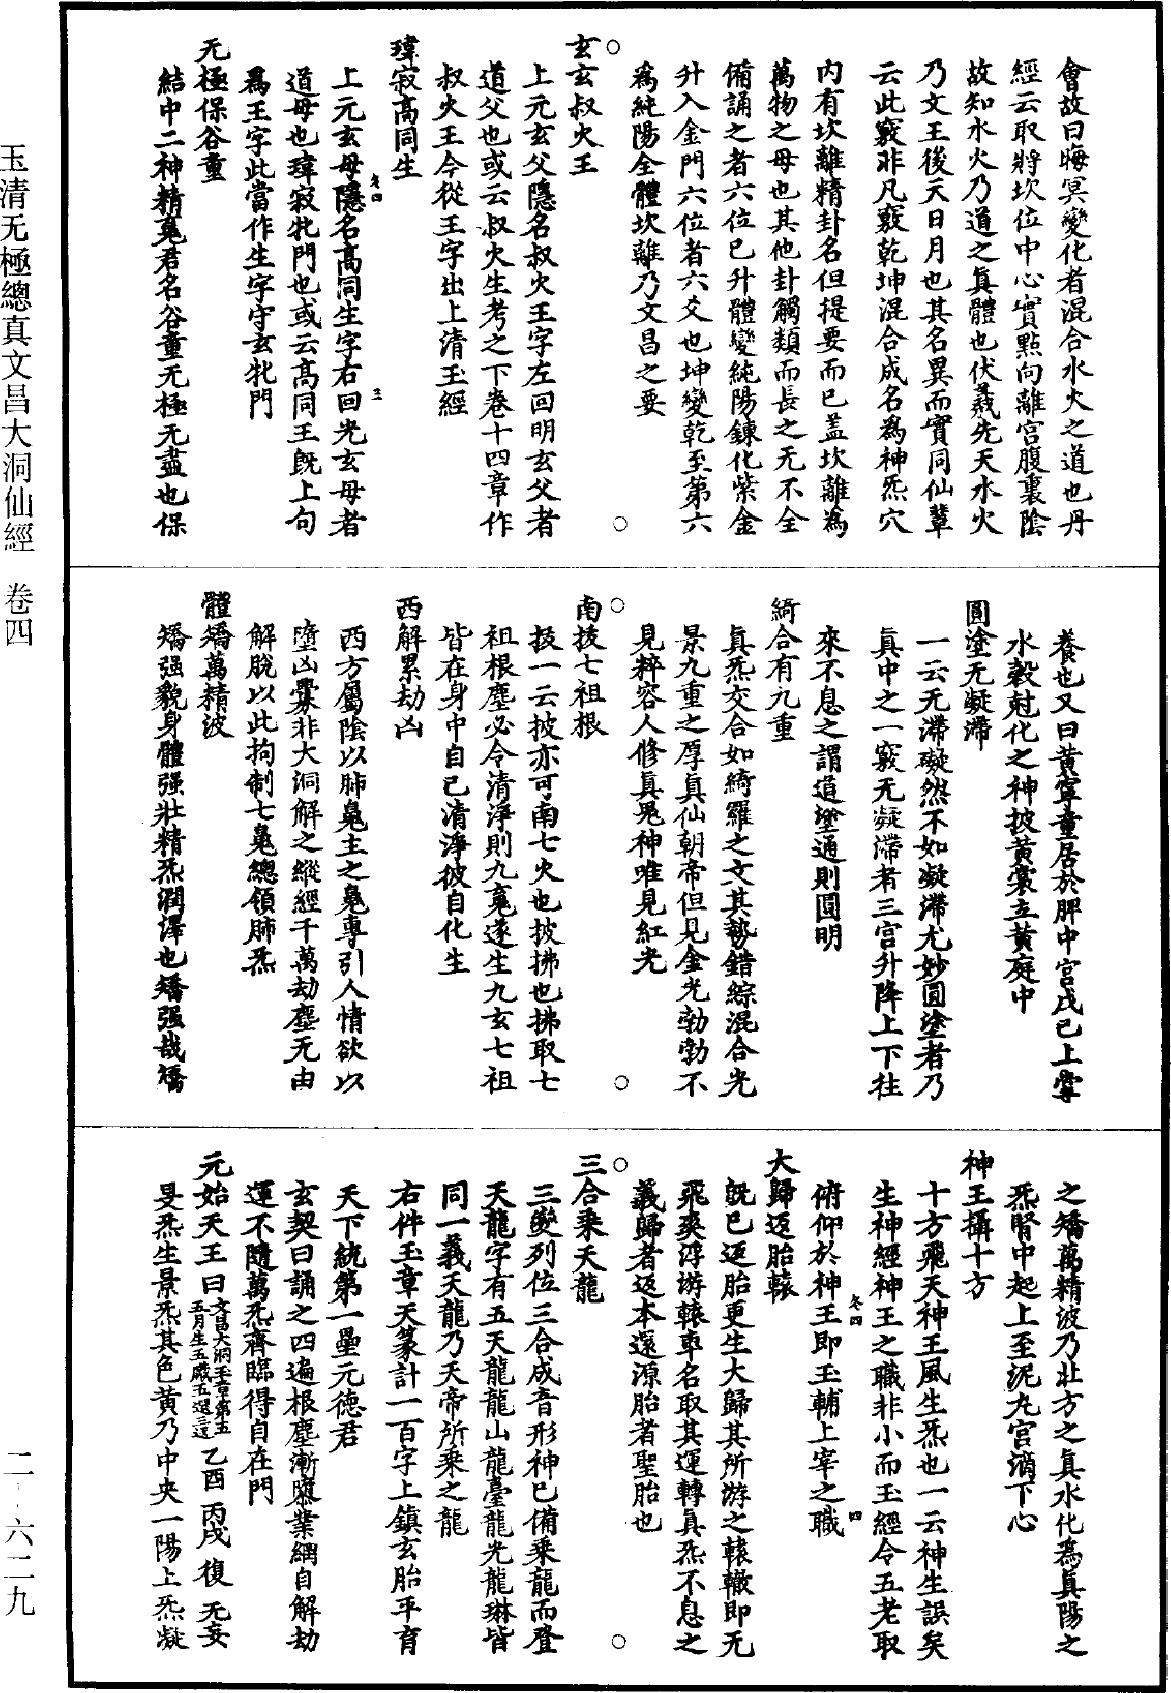 會故曰晦冥變化者混合水火之道也丹
經云取將坎位中心實點向離宮腹裏陰
故知水火乃道之真體也伏羲先天水火
乃文王後天日月也其名異而實同仙輩
云此竅非凡竅乾坤混合成名爲神炁穴
內有坎離精卦名但提要而已蓋坎離爲
萬物之母也其他卦觸類而長之无不全
備誦之者六位已升體變純陽鍊化紫金
升入金門六位者六爻也坤變乾至第六
爲純陽全體坎離乃文昌之要
○
玄玄叔火王
上元玄父隱名叔火王字左回明玄父者
道父也或云叔火生考之下卷十四章作
叔火王今從王字出上清玉經
瑋寂高同生
上元玄母隱名高同生字右回光玄母者
道母也瑋寂牝門也或云高同王既上句
爲王字此當作生字守玄牝門
无極保谷童
結中二神精冕君名谷童无極无盡也保
養也又曰黃寧童居於脾中宮戊己上掌
水穀尅化之神披黃裳立黃庭中
圓塗无凝滯
一云无滯礙然不如凝滯尤妙圓塗者乃
真中之一竅无凝滯者三宮升降上下往
來不息之謂道塗通則圓明
綺合有九重
真炁交合如綺羅之文其勢錯綜混合光
景九重之厚真仙朝帝但見金光勃勃不
見粹容人修真冕神唯見紅光
○
南拔七祖根
拔一云披亦可南七火也披拂也拂取七
祖根塵必令清淨則九冕遂生九玄七祖
皆在身中自已清淨彼自化生
西解累劫凶
西方屬陰以肺皃主之皃專引人情欲以
墮凶釁非大洞解之縱經千萬劫塵无由
解脫以此拘制七皃總領肺炁
體矯萬精波
矯强貌身體强壯精炁潤澤也矯强哉矯
之矯萬精波乃北方之真水化爲真陽之
炁腎中起上至泥丸宮滴下心
神王攝十方
十方飛天神王風生炁也一云神生誤矣
生神經神王之職非小而玉經令五老取
俯仰於神王即玉輔上宰之職
大歸返胎轅
既已返胎更生大歸其所游之轅轍即无
飛爽浮游轅車名取其運轉真炁不息之
義歸者返本還源胎者聖胎也
○
三合乘天龍
三變列位三合成音形神已備乘龍而登
天龍字有五天龍龍山龍臺龍光龍琳皆
同一義天龍乃天帝所乘之龍
右件玉章天篆計一百字上鎮玄胎平育
天下統第一壘元德君
玄契曰誦之四遍根塵漸隳業網自解劫
運不隨萬炁齊臨得自在門
元始天王曰文昌大洞玉章第五五月生五歲五遐三還乙酉 丙戌 復 无妄
旻炁生景炁其色黃乃中央一陽上炁凝
玉清无極總真文昌大洞仙經　卷四
二-六二九